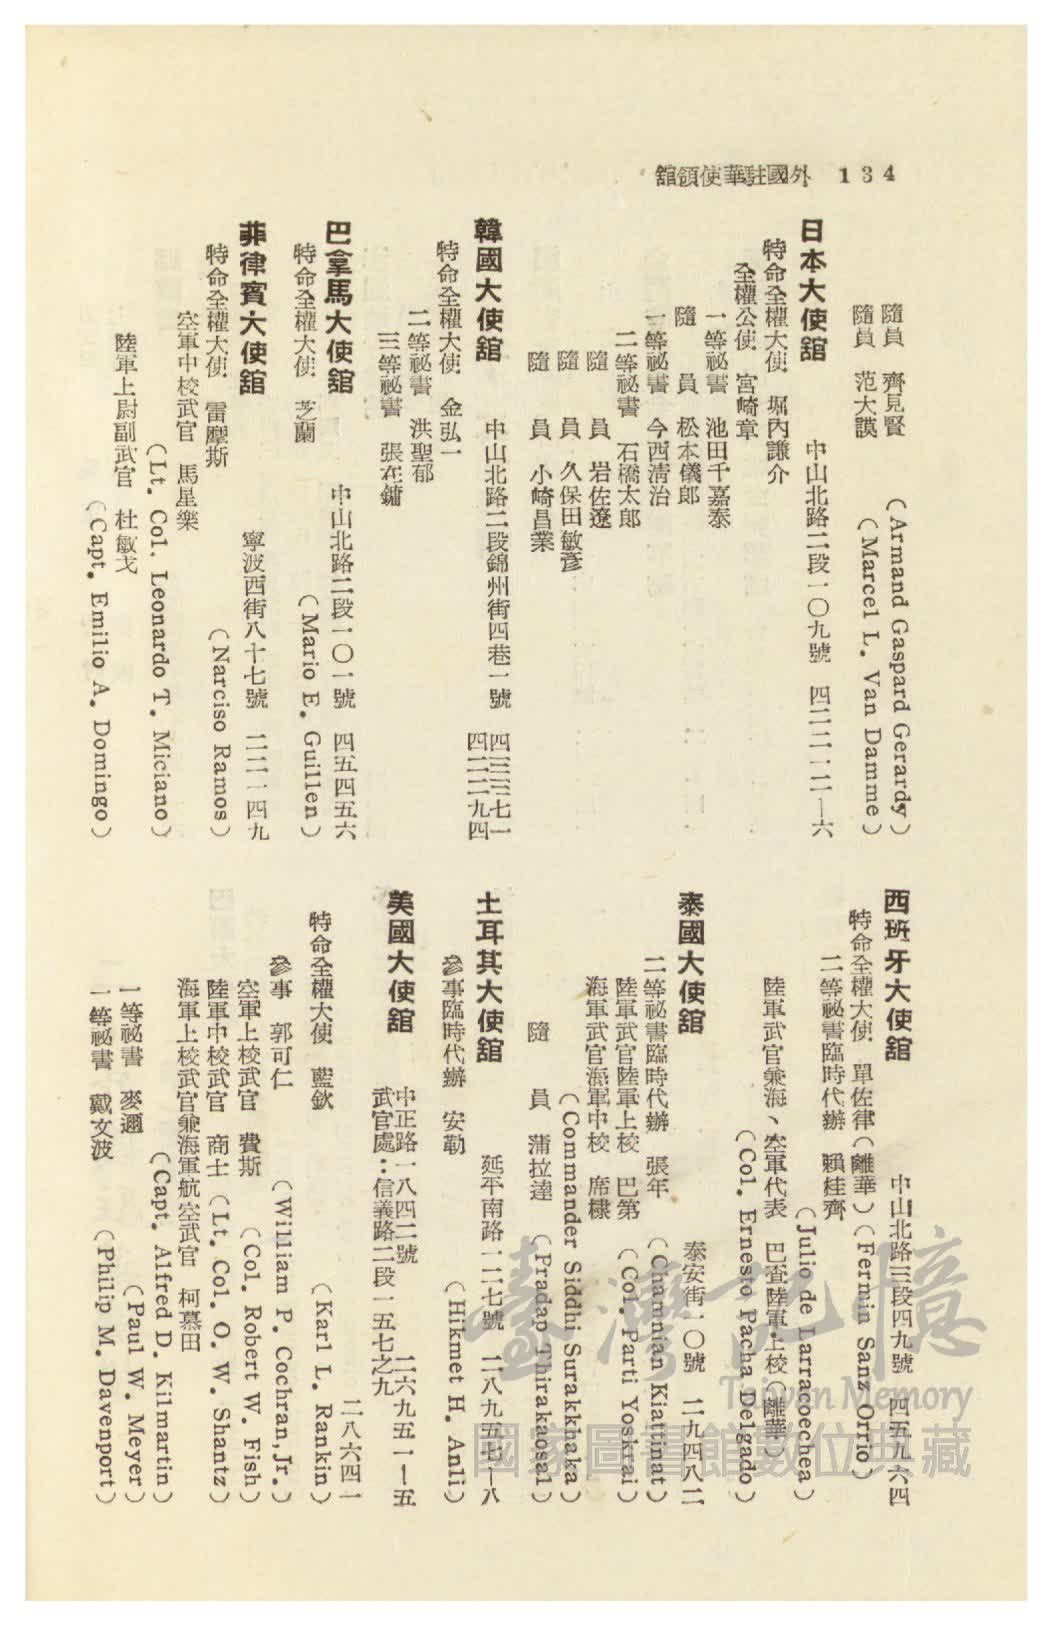 134　外國駐華使領舘
隨員　齊見賢　（Armand Gaspard Gerardy）
隨員　范大謨　（Marcel L. Van Damme）
日本大使舘　中山北路二段一〇九號
特命全權大使　堀內謙介
全權公使　宮崎章
一等秘書　池田千嘉泰
隨　員　松本儀郎
一等秘書　今西淸治
二等秘書　石橋太郎
隨　員　岩佐遼
隨　員　久保田敏彥
隨　員　小崎昌業
韓國大使舘　中山北路二段錦州街四巷一號
特命全權大使　金弘一
二等秘書　洪聖郁
三等秘書　張在鏞
巴拿馬大使舘　中山北路二段一〇一號　四五四五六
特命全權大使　芝蘭　（Mario E. Guillen）
菲律賓大使舘　寧波西街八十七號
特命全權大使　雷摩斯　（Narciso Ramos）
空軍中校武官　馬星樂
（Lt. Col. Leonardo T. Miciano）
陸軍上尉副武官　杜敏戈
（Capt. Emilio A. Domingo）
西班牙大使舘　中山北路三段四九號　四五九六四
特命全權大使　單佐律（離華）（Fermin Sanz Orrio）
二等秘書臨時代辦　賴桂齊
（Julio de Larracoechea）
陸軍武官兼海、空軍代表　巴查陸軍上校（離華）
（Col. Ernesto Pacha Delgado）
泰國大使舘　泰安街一〇號　二九四八二
二等秘書臨時代辦　張年　（Chamnian Kiattinat）
陸軍武官陸軍上校　巴第　（Col. Parti Yoskrai）
海軍武官海軍中校　席棣
（Commander Siddhi Surakkhaka）
隨　員　蒲拉達　（Pradap Thirakaosal）
土耳其大使舘　延平南路一二七號　二八九五七—八
參事臨時代辦　安勒　（Hikmet H. Anli）
美國大使舘　中正路一八四二號　二六九五一—五
武官處：信義路二段一五七之九　二八六四一
特命全權大使　藍欽　（Karl L. Rankin）
參事　郭可仁　（William P. Cochran, Jr.）
空軍上校武官　費斯　（Col. Robert W. Fish）
陸軍中校武官　商士　（Lt. Col. O. W. Shantz）
海軍上校武官兼海軍航空武官　柯慕田
（Capt. Alfred D. Kilmartin）
一等秘書　麥邇　（Paul W. Meyer）
一等秘書　戴文波　（Philip M. Davenport）
臺灣記憶
Taiwan Memory
國家圖書館數位典藏